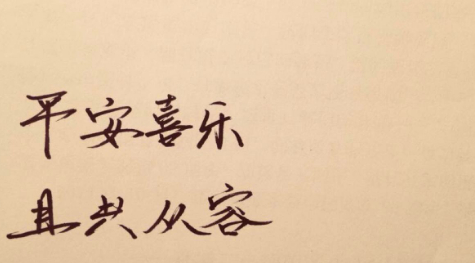 平安喜乐
且共从容